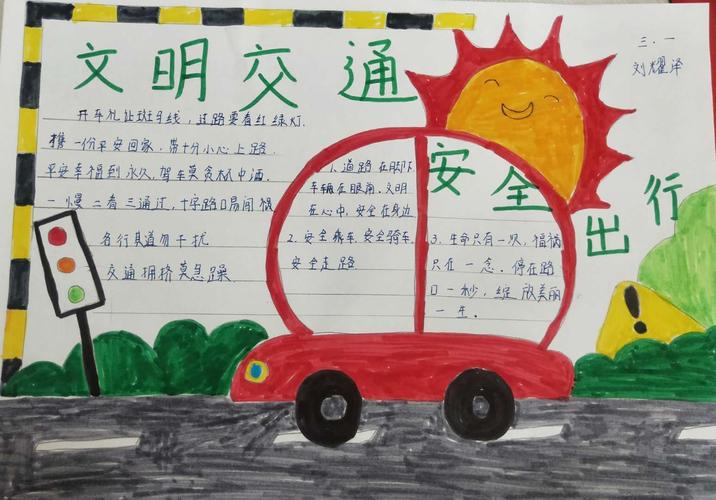 文明交通
三.一
刘耀泽
开车礼让斑马线，过路要看红绿灯.
携一份平安回家，带十分小心上路.
平安幸福到永久，驾车莫贪杯中酒.
一慢二看三通过，十字路口易闯祸
各行其道勿干扰
交通拥挤莫急躁
1.道路在脚下
车辆在眼角.文明
在心中，安全在身边
2.安全乘车.安全骑车
安全走路
安全
出行
3.生命只有一次，福祸
只在一念.停在路
口一秒，绽放美丽
一生.